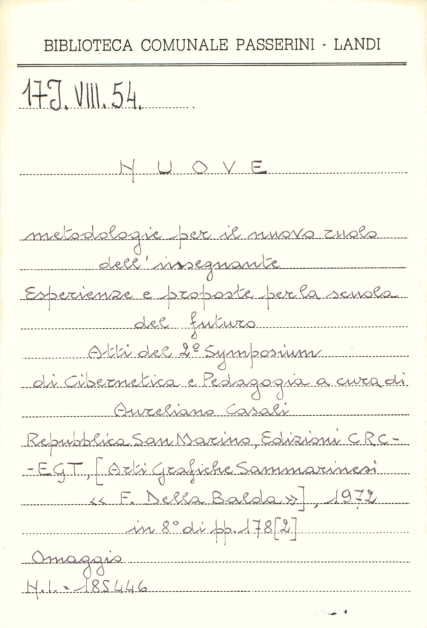 BIBLIOTECA COMUNALE PASSERINI - LANDI
17J.VIII.54.
NUOVE
metodologie per il nuovo ruolo
dell'insegnante
Esperienze e proposte per la scuola
del futuro
Atti del 2º Symposium
di Cibernetica e Pedagogia a cura di
Aureliano Casali
Repubblica San Marino, Edizioni CRC-
-EGT, [Arti Grafiche Sammarinesi
« F. Della Balda »], 1972
in 8º di pp. 178[2]
Omaggio
N.I. - 185446